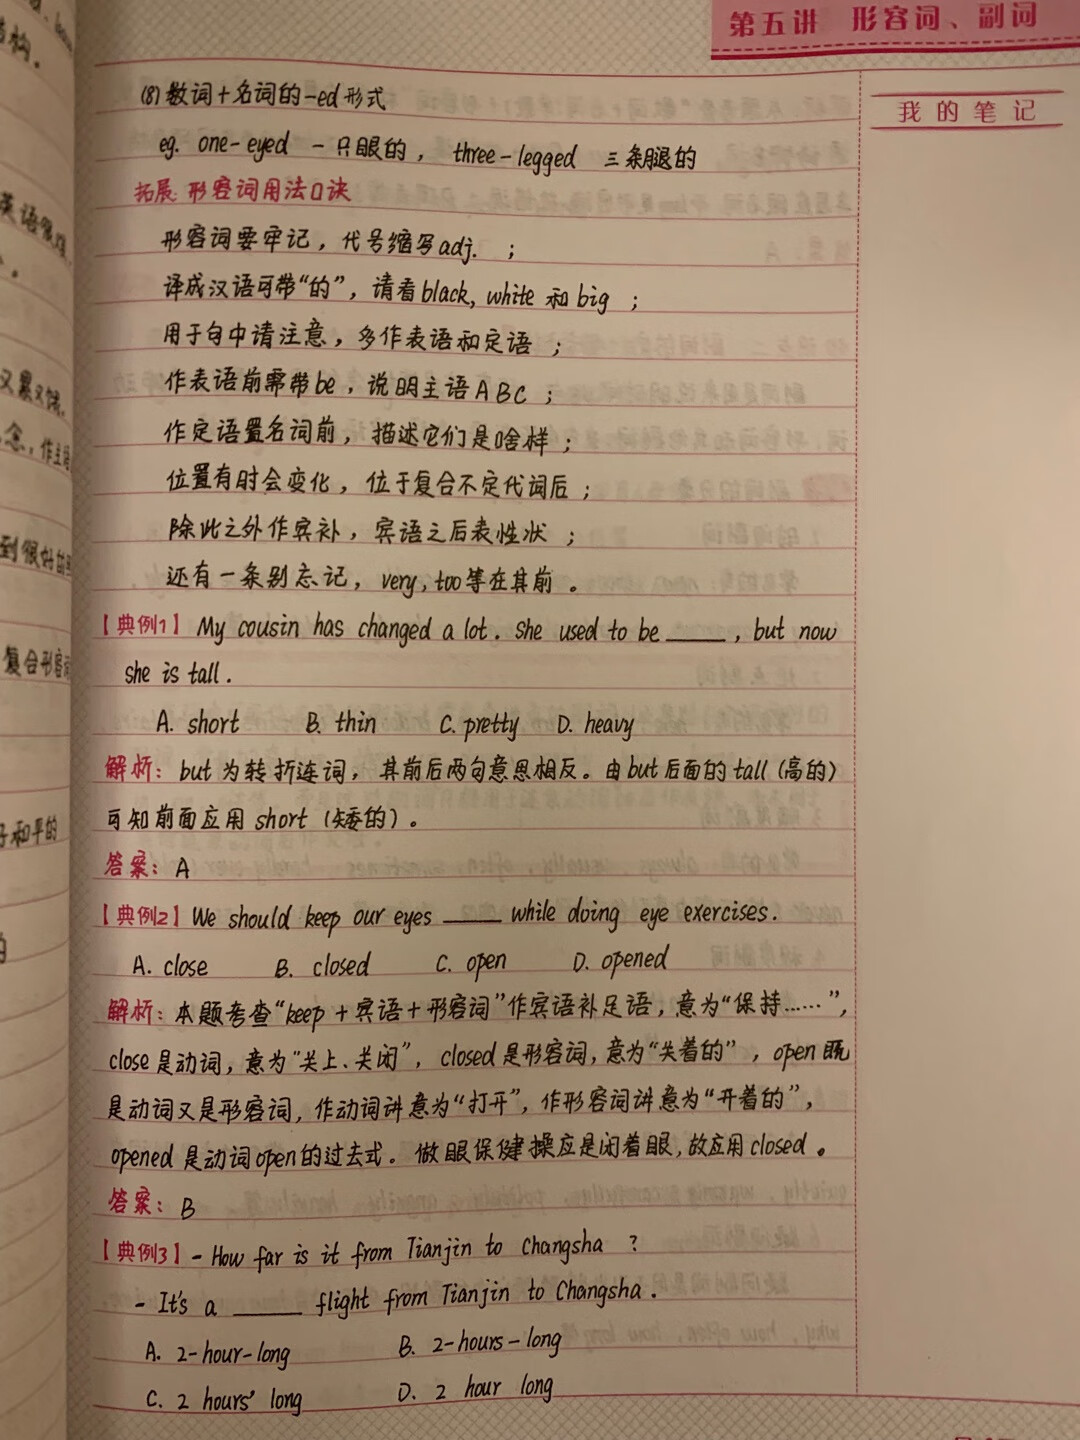 第五讲 形容词、副词
我的笔记
(8)数词+名词的-ed形式
eg. one-eyed 一只眼的, three-legged 三条腿的
拓展:形容词用法口诀
形容词要牢记,代号缩写adj. ;
译成汉语可带“的”,请看black, white 和 big ;
用于句中请注意,多作表语和定语 ;
作表语前需带be,说明主语ABC ;
作定语置名词前,描述它们是啥样 ;
位置有时会变化,位于复合不定代词后 ;
除此之外作宾补,宾语之后表性状 ;
还有一条别忘记,very, too等在其前 。
【典例1】My cousin has changed a lot. She used to be _____, but now
she is tall.
A. short B. thin C. pretty D. heavy
解析:but为转折连词,其前后两句意思相反。由but后面的tall(高的)
可知前面应用short(矮的)。
答案:A
【典例2】We should keep our eyes _____ while doing eye exercises.
A. close B. closed C. open D. opened
解析:本题考查“keep+宾语+形容词”作宾语补足语,意为“保持……”,
close是动词,意为“关上、关闭”,closed是形容词,意为“关着的”,open既
是动词又是形容词,作动词讲意为“打开”,作形容词讲意为“开着的”,
opened是动词open的过去式。做眼保健操应是闭着眼,故应用closed。
答案:B
【典例3】- How far is it from Tianjin to Changsha ?
- It's a _____ flight from Tianjin to Changsha.
A. 2-hour-long B. 2-hours-long
C. 2 hours' long D. 2 hour long